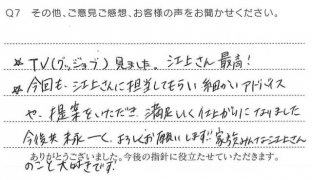 Q7 その他、ご意見ご感想、お客様の声をお聞かせください。
★ TV(グッジョブ)見ました。江上さん最高!
★ 今回も、江上さんに担当してもらい細かいアドバイス
や、提案をいただき、満足いく仕上がりになりました
今後共末永ーく、よろしくお願いします!!家族みんな江上さん
ありがとうございました。今後の指針に役立たせていただきます。
のこと大好きです。